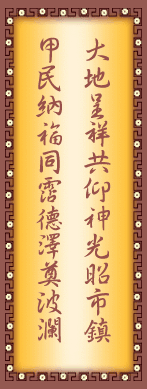 大地呈祥共仰神光昭市鎮
甲民納福同霑德澤奠波瀾